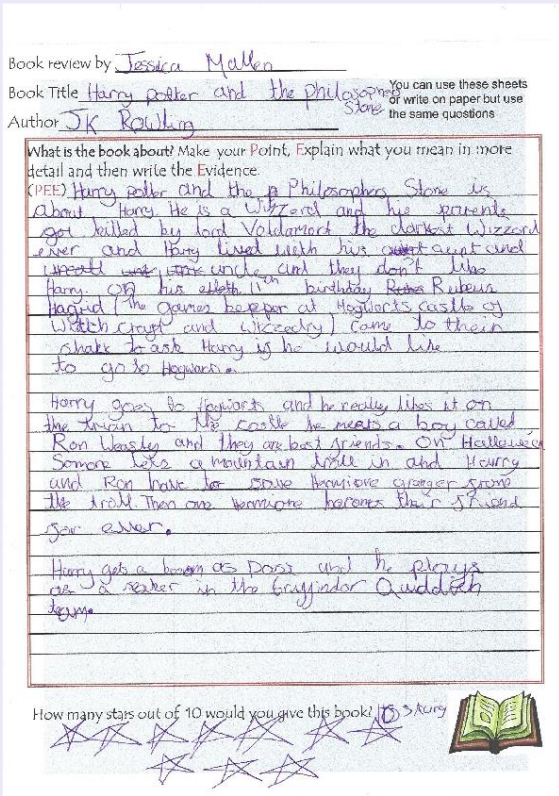 Book review by Jessica Mallen
Book Title Harry potter and the philosophers
Stone
You can use these sheets
or write on paper but use
the same questions
Author JK Rowling
What is the book about? Make your Point, Explain what you mean in more
detail and then write the Evidence.
(PEE) Harry potter and the Philosophers Stone is
about Harry. He is a Wizzerd and his parents
got killed by lord Voldamort the darkest Wizzard
ever and Harry lived with his aunt and
uncle and they don't like
Harry. on his 11th birthday Rubeus
Hagrid (The games keeper at Hogwarts castle of
Witch craft and Wizzedry) came to their
shake to ask Harry if he would like
to go to Hogwarts.
Harry goes to Hogwarts and he really likes it on
the train to the castle he meets a boy called
Ron Weasley and they are best friends. On
Somone lets a mountain troll in and Haurry
and Ron have to save Hermione granger frome
the troll. Then one hermione becomes their friend
for ever.
Harry gets a broom as Doss and he plays
as a seaker in the Gryffindor Quidditch
team.
How many stars out of 10 would you give this book? 10 stars